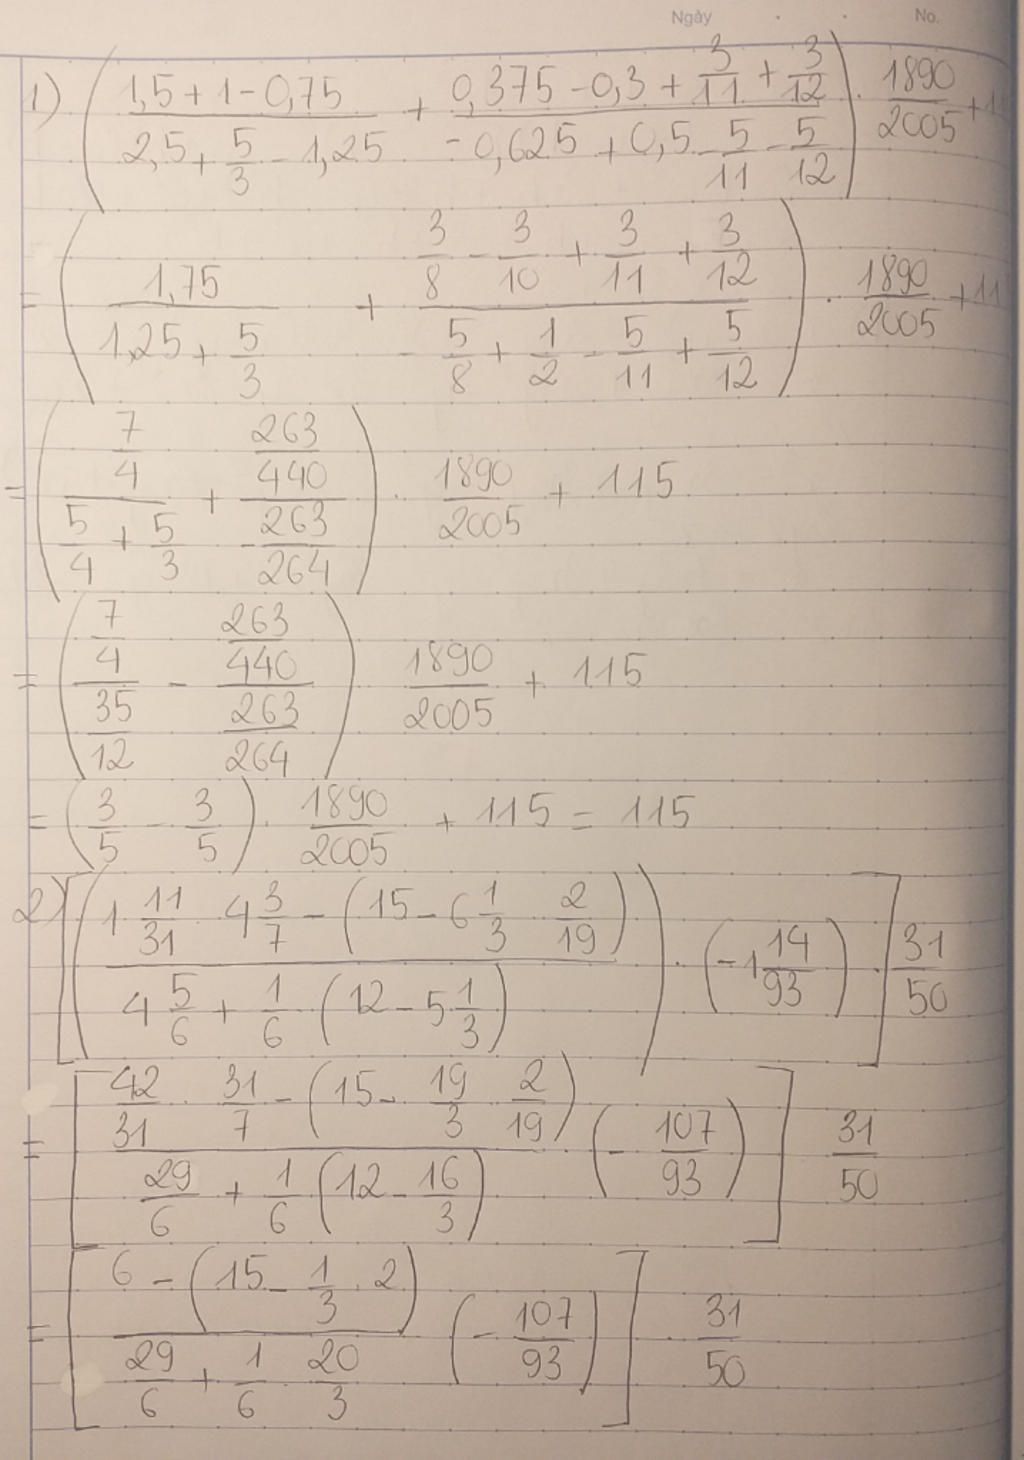 Ngày No.
1) ( (1,5 + 1 - 0,75)/(2,5 + 5/3 - 1,25) + (0,375 - 0,3 + 3/11 + 3/12)/(-0,625 + 0,5 - 5/11 - 5/12) ) . 1890/2005 + 1
= ( 1,75/(1,25 + 5/3) + (3/8 - 3/10 + 3/11 + 3/12)/(- 5/8 + 1/2 - 5/11 + 5/12) ) . 1890/2005 + 11
= ( (7/4)/(5/4 + 5/3) + (263/440)/(- 263/264) ) . 1890/2005 + 115
= ( (7/4)/(35/12) - (263/440)/(263/264) ) 1890/2005 + 115
= ( 3/5 - 3/5 ) . 1890/2005 + 115 = 115
2) [ ( (1 11/31 . 4 3/7 - (15 - 6 1/3 . 2/19))/(4 5/6 + 1/6 (12 - 5 1/3)) ) . (-1 14/93) ] . 31/50
= [ (42/31 . 31/7 - (15 - 19/3 . 2/19))/(29/6 + 1/6 (12 - 16/3)) . (- 107/93) ] 31/50
= [ (6 - (15 - 1/3 . 2))/(29/6 + 1/6 . 20/3) (- 107/93) ] . 31/50